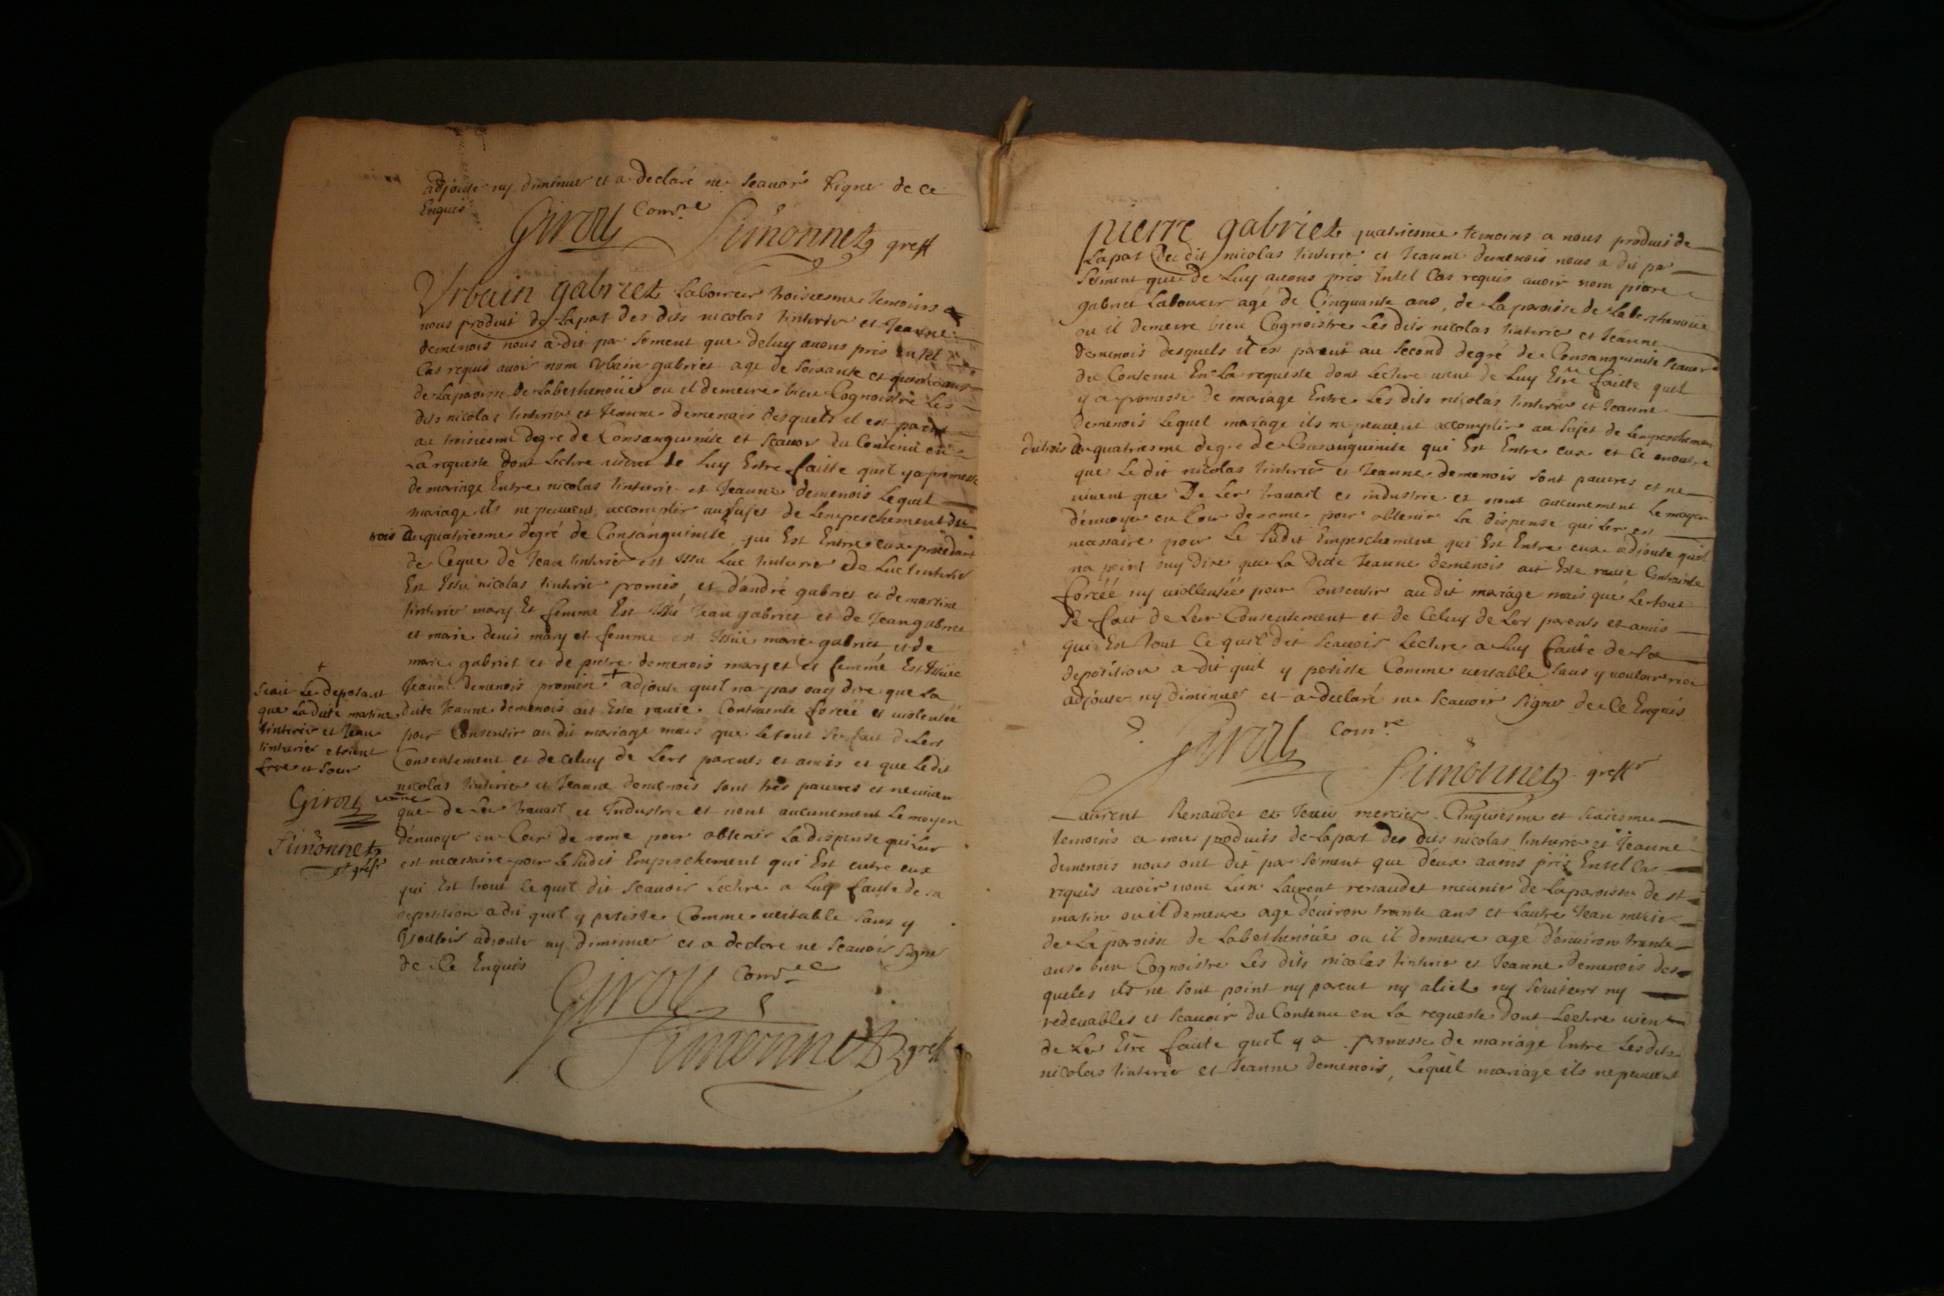 adjouter ny diminuer et a declaré ne scavoir signer de ce
Enquis
Girou Comre Simonnet greff
Urbain gabriet Laboureur troisiesme temoins a
nous produit de Lapart des dits nicolas tinturie et Jeanne
demenois nous a dit par serment que deluy avons pris en tel
Cas requis avoir nom Urbain gabriet agé de soixante et ans
de Laparoisse de Labesthenoüe ou il demeure bien Cognoistre Les
dits nicolas tinturie et Jeanne demenois desquels il est parent
au troisiesme degré de Consanguinité et scavoir du Contenu en
La requeste dont Lecture vient de Luy Estre faitte quil y a promesse
de mariage Entre nicolas tinturie et Jeanne demenois Lequel
mariage ils ne peuvent accomplir au sujet de Lempeschement du
trois au quatriesme degré de Consanguinité qui Est Entre eux procedant
de Ceque de Jean tinturie est issu Luc tinturie et de Luc tinturie
Est Issu nicolas tinturie promis et d'andré gabriet et de martine
tinturie mary Et femme Est Issu Jean gabriet et de Jean gabriet
et marie denis mary et femme est Issüe marie gabriet et de
marie gabriet et de pierre demenois mary et et femme Est Issüe
Jeanne demenois promise + adjoute quil na pas ouy dire que La
dite Jeanne demenois ait Esté ravie Contrainte forcéé et violentéé
pour Consentir au dit mariage mais que Le tout se fait de Leur
Consentement et de Celuy de Leurs parents et amis et que Le dit
nicolas tinturie et Jeanne demenois sont tres pauvres et ne vivent
que de Leur travail et Industrie et nont aucunement Le moyen
d'envoyer en Cour de rome pour obtenir La dispense qui Leur
est necessaire pour Le susdit Empeschement qui Est entre eux
qui Est tout Ce quil dit scavoir Lecture a Luy faite de sa
deposition a dit quil y persiste Comme veritable sans y
vouloir adjouter ny diminuer et a declare ne scavoir signer
de Ce Enquis
Girou Comre
Simonnet greff
+
scait Le deposant
que La dite martine
tinturie et Jean
tinturier etoient
frere et soeur
Girou Comre
Simonnet
greff
pierre gabriet quatriesme temoins a nous produit de
Lapart des dit nicolas tinturie et Jeanne demenois nous a dit par
serment que de Luy avons pris Entel Cas requis avoir nom pierre
gabriet Laboureur agé de Cinquante ans, de La paroisse de Labesthenoüe
ou il demeure bien Cognoistre Les dits nicolas tinturie et Jeanne
demenois desquels il est parent au second degré de Consanguinité scavoir
du Contenu En La requeste dont Lecture vient de Luy Etre faitte quil
y a promesse de mariage Entre Les dits nicolas tinturie et Jeanne
demenois Lequel mariage ils ne peuvent accomplir au sujet de Lempeschement
du trois au quatriesme degré de Consanguinité qui Est Entre eux et Ce
que Le dit nicolas tinturie et Jeanne demenois sont pauvres et ne
vivent que De Leur travail et industrie et nont aucunement Le moyen
d'envoyer en Cour de rome pour obtenir La dispense qui Leur est
necessaire pour Le susdit Empeschement qui Est Entre eux adjoute quil
na point ouy dire que La Dite Jeanne demenois ait Esté ravie Contrainte
forcéé ny viollentéé pour Consentir au dit mariage mais que Le tout
se fait de Leur Consentement et de Celuy de Leurs parents et amis
qui Est tout Ce quil dit scavoir Lecture a Luy faite de sa
deposition a dit quil y persiste Comme veritable sans y vouloir rien
adjouter ny diminuer et a declaré ne scavoir signer de Ce Enquis
Girou Comre
Simonnet greffr
Laurent Renaudet et Jean mercier Cinquiesme et sixiesme
temoins a nous produits de Lapart des dits nicolas tinturie et Jeanne
demenois nous ont dit par serment que d'eux avons pris Entel Cas
requis avoir nom Lun Laurent renaudet meunier de Laparoisse de st
martin ou il demeure agé d'environ trante ans et Lautre Jean mercier
de La paroisse de Labesthenoüe ou il demeure agé d'environ trante
ans bien Cognoistre Les dits nicolas tinturie et Jeanne demenois des
queles ils ne sont point ny parent ny aliet ny serviteurs ny
redevables et scavoir du Contenu en La requeste dont Lecture vient
de Leur Etre faite quil y a promesse de mariage Entre Les dits
nicolas tinturie et Jeanne demenois, Lequel mariage ils ne peuvent